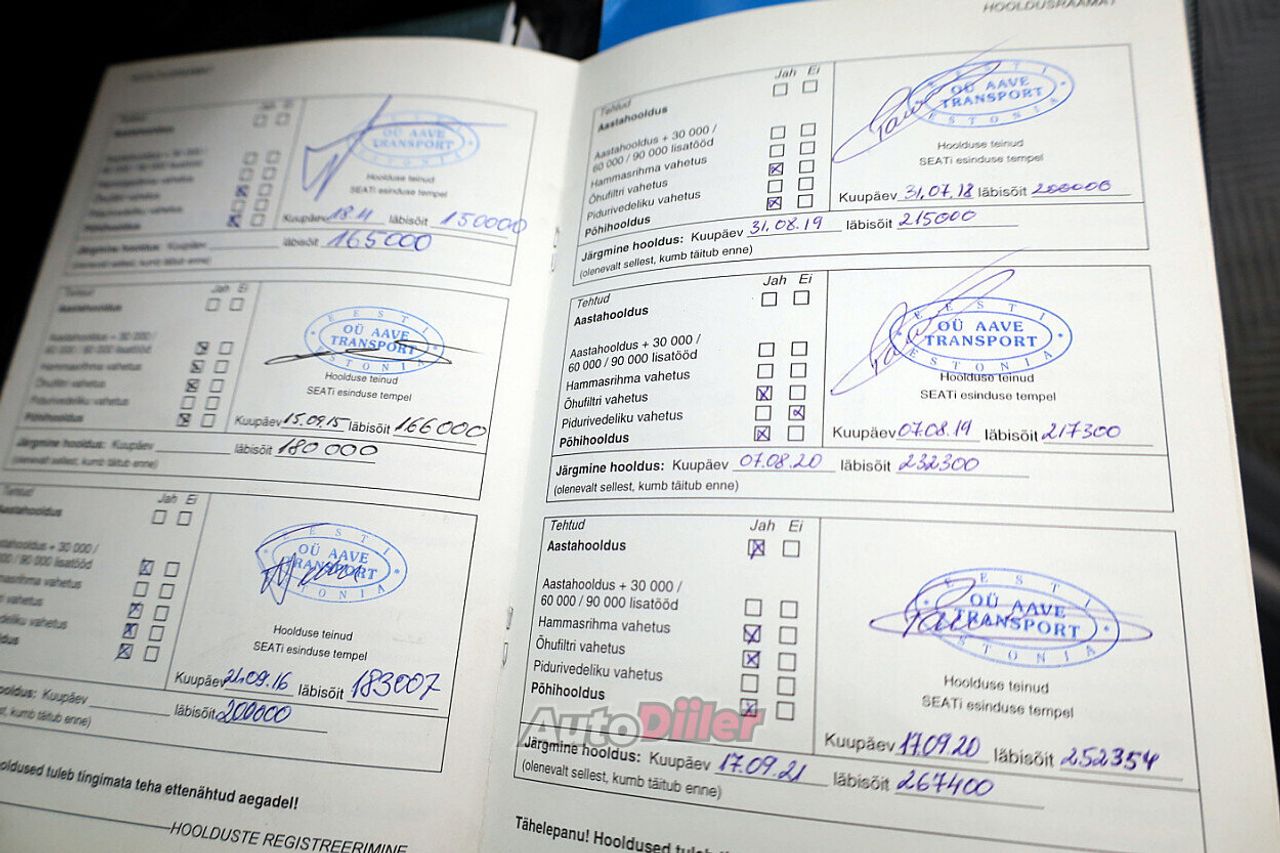 Tehtud
Jah Ei
Aastahooldus
Aastahooldus + 30 000 /
60 000 / 90 000 lisatööd
Hammasrihma vahetus
Põhihooldus
OÜ AAVE
TRANSPORT
ESTONIA
Hoolduse teinud
SEATi esinduse tempel
Kuupäev 18.11 läbisõit 150000
Järgmine hooldus: Kuupäev läbisõit 165000
(olenevalt sellest, kumb täitub enne)
Tehtud
Jah Ei
Aastahooldus
Aastahooldus + 30 000 /
60 000 / 90 000 lisatööd
Hammasrihma vahetus
Õhufiltri vahetus
Pidurivedeliku vahetus
Põhihooldus
EESTI
OÜ AAVE
TRANSPORT
ESTONIA
Hoolduse teinud
SEATi esinduse tempel
Kuupäev 15.09.15 läbisõit 166000
Järgmine hooldus: Kuupäev läbisõit 180 000
(olenevalt sellest, kumb täitub enne)
Tehtud
Jah Ei
aastahooldus
hooldus + 30 000 /
000 / 90 000 lisatööd
masrihma vahetus
ri vahetus
edeliku vahetus
oldus
EESTI
OÜ AAVE
TRANSPORT
ESTONIA
Hoolduse teinud
SEATi esinduse tempel
Kuupäev 21.09.16 läbisõit 183007
hooldus: Kuupäev läbisõit 200000
sellest, kumb täitub enne)
ooldused tuleb tingimata teha ettenähtud aegadel!
HOOLDUSTE REGISTREERIMINE
HOOLDUSRAAMAT
Tehtud
Jah Ei
Aastahooldus
Aastahooldus + 30 000 /
60 000 / 90 000 lisatööd
Hammasrihma vahetus
Õhufiltri vahetus
Pidurivedeliku vahetus
Põhihooldus
EESTI
OÜ AAVE
TRANSPORT
ESTONIA
Hoolduse teinud
SEATi esinduse tempel
Kuupäev 31.07.18 läbisõit
Järgmine hooldus: Kuupäev 31.08.19 läbisõit 215000
(olenevalt sellest, kumb täitub enne)
Tehtud
Jah Ei
Aastahooldus
Aastahooldus + 30 000 /
60 000 / 90 000 lisatööd
Hammasrihma vahetus
Õhufiltri vahetus
Pidurivedeliku vahetus
Põhihooldus
EESTI
OÜ AAVE
TRANSPORT
ESTONIA
Hoolduse teinud
SEATi esinduse tempel
Kuupäev 07.08.19 läbisõit 217300
Järgmine hooldus: Kuupäev 07.08.20 läbisõit 232300
(olenevalt sellest, kumb täitub enne)
Tehtud
Jah Ei
Aastahooldus
Aastahooldus + 30 000 /
60 000 / 90 000 lisatööd
Hammasrihma vahetus
Õhufiltri vahetus
Pidurivedeliku vahetus
Põhihooldus
EESTI
OÜ AAVE
TRANSPORT
ESTONIA
Hoolduse teinud
SEATi esinduse tempel
Kuupäev 17.09.20 läbisõit 252354
AutoDiiler
Järgmine hooldus: Kuupäev 17.09.21 läbisõit 267400
(olenevalt sellest, kumb täitub enne)
Tähelepanu! Hooldused tuleb